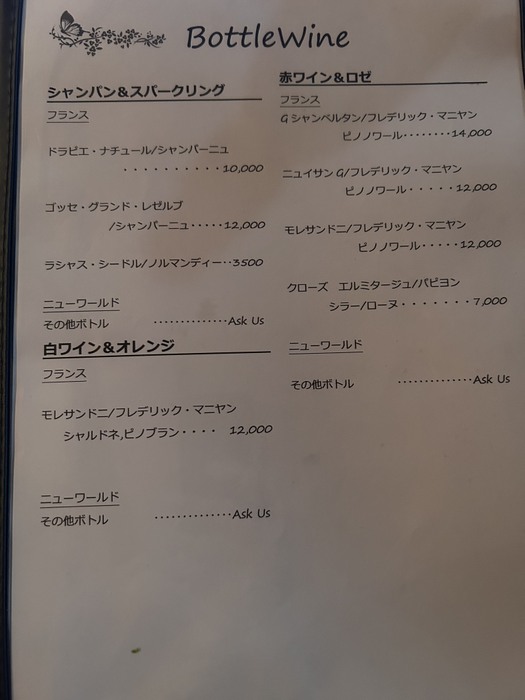 BottleWine
シャンパン&スパークリング
フランス
ドラピエ・ナチュール/シャンパーニュ
・・・・・・・・・・10,000
ゴッセ・グランド・レゼルブ
/シャンパーニュ・・・・・12,000
ラシャス・シードル/ノルマンディー・・3500
ニューワールド
その他ボトル ・・・・・・・・・・・・・・Ask Us
白ワイン&オレンジ
フランス
モレサンドニ/フレデリック・マニャン
シャルドネ,ピノブラン・・・・ 12,000
ニューワールド
その他ボトル ・・・・・・・・・・・・・・Ask Us
赤ワイン&ロゼ
フランス
Gシャンベルタン/フレデリック・マニャン
ピノノワール・・・・・・・・14,000
ニュイサンG/フレデリック・マニャン
ピノノワール・・・・・12,000
モレサンドニ/フレデリック・マニャン
ピノノワール・・・・・12,000
クローズ エルミタージュ/パピヨン
シラー/ローヌ・・・・・・・7,000
ニューワールド
その他ボトル ・・・・・・・・・・・・・・Ask Us